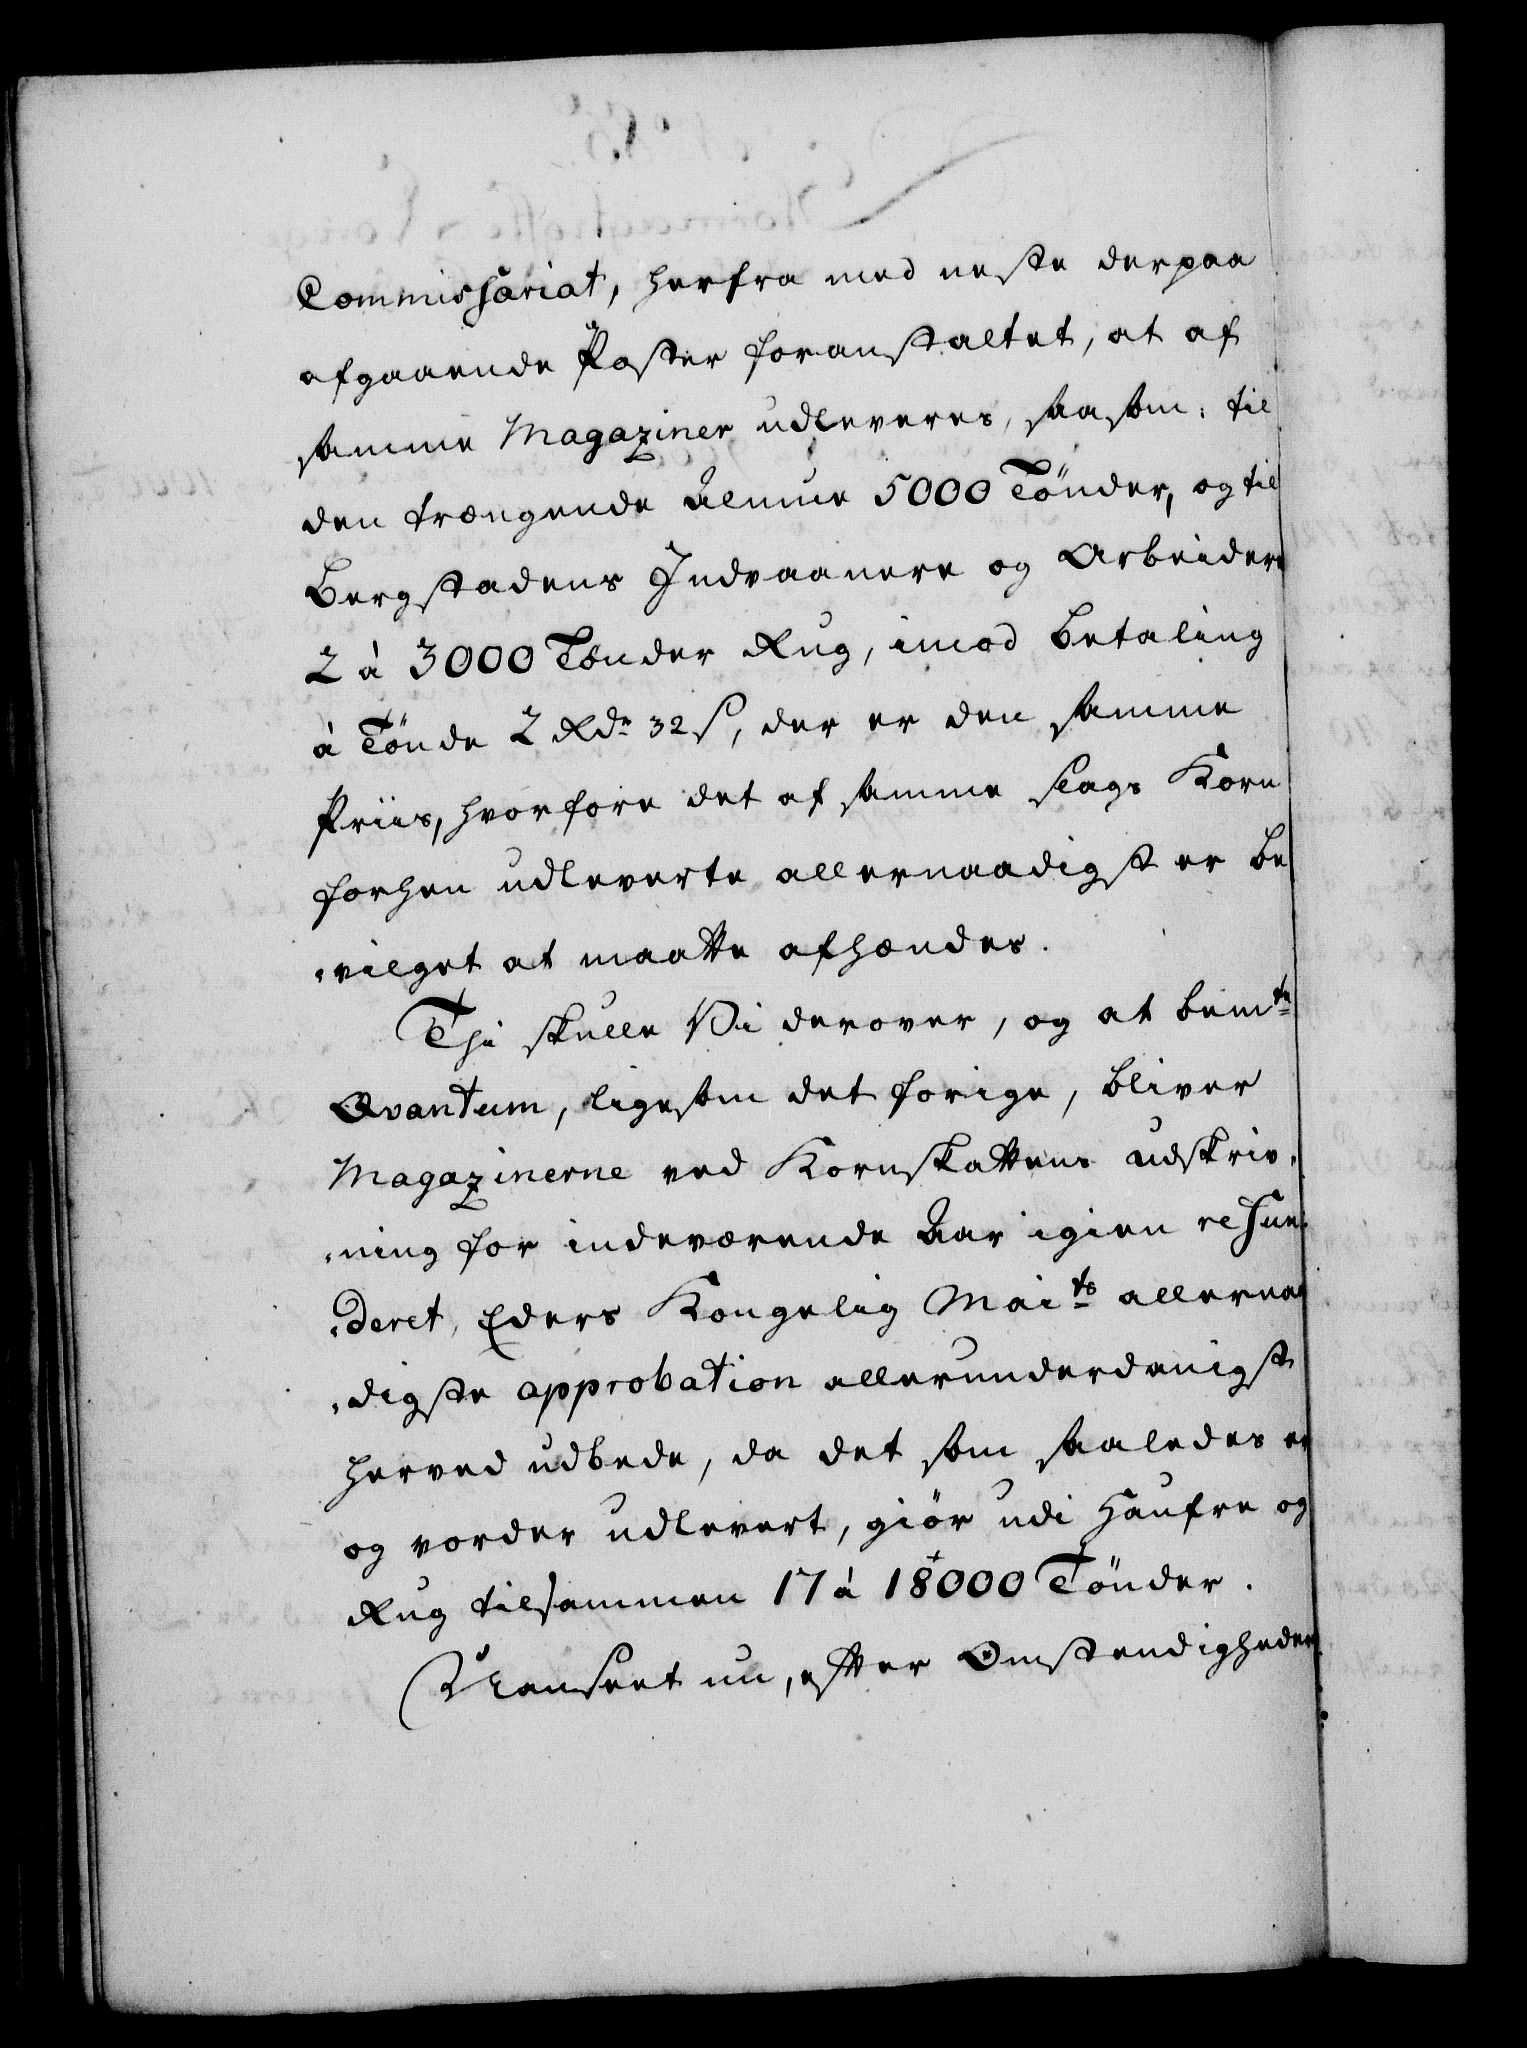 Commissariat, herfra med neste derpaa
afgaaende Poster foranstaltet, at af
samme Magaziner udleveres, saasom: til
den trængende Almue 5000 Tönder, og til
Bergstadens Indvaanere og Arbeidere
2 à 3000 Tønder Rug, imod betaling
à Tönde 2 Rdr 32 s, der er den samme
Priis, hvorfore det af samme slags Korn
forhen udleverte allernaadigst er be
„vilget at maatte afhændes.
Thi skulle Vi derover, og at bemte
Qvantum, ligesom det forige, bliver
Magazinerne ved Kornskattens udskriv„
„ning for indeværende Aar igien refun„
„deret, Eders Kongelig Maits allernaa
„digste approbation allerunderdanigst
herved udbede, da det som saaledes er
og vorder udlevert, giör udi Haufre og
Rug tilsammen 17 à 18000 Tönder.
Uanseet nu, efter Omstendigheder